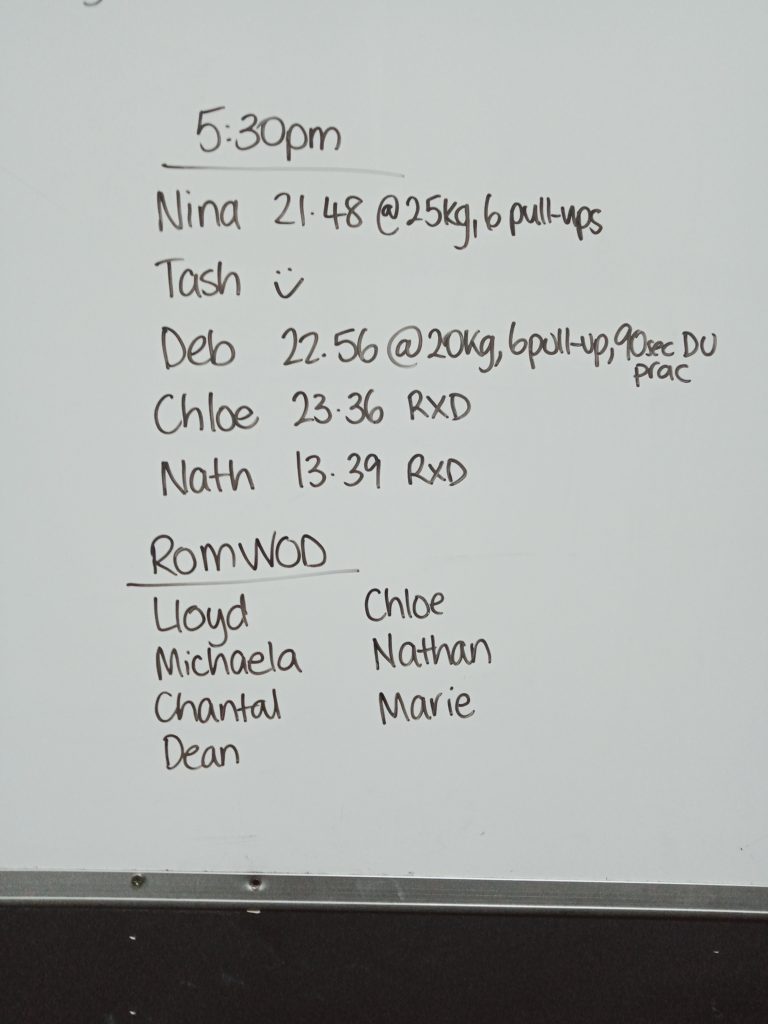 5:30pm
Nina 21.48 @25kg, 6 pull-ups
Tash
Deb 22.56 @20kg, 6pull-up, 90sec DU
prac
Chloe 23.36 RXD
Nath 13.39 RXD
ROMWOD
Lloyd Chloe
Michaela Nathan
Chantal Marie
Dean